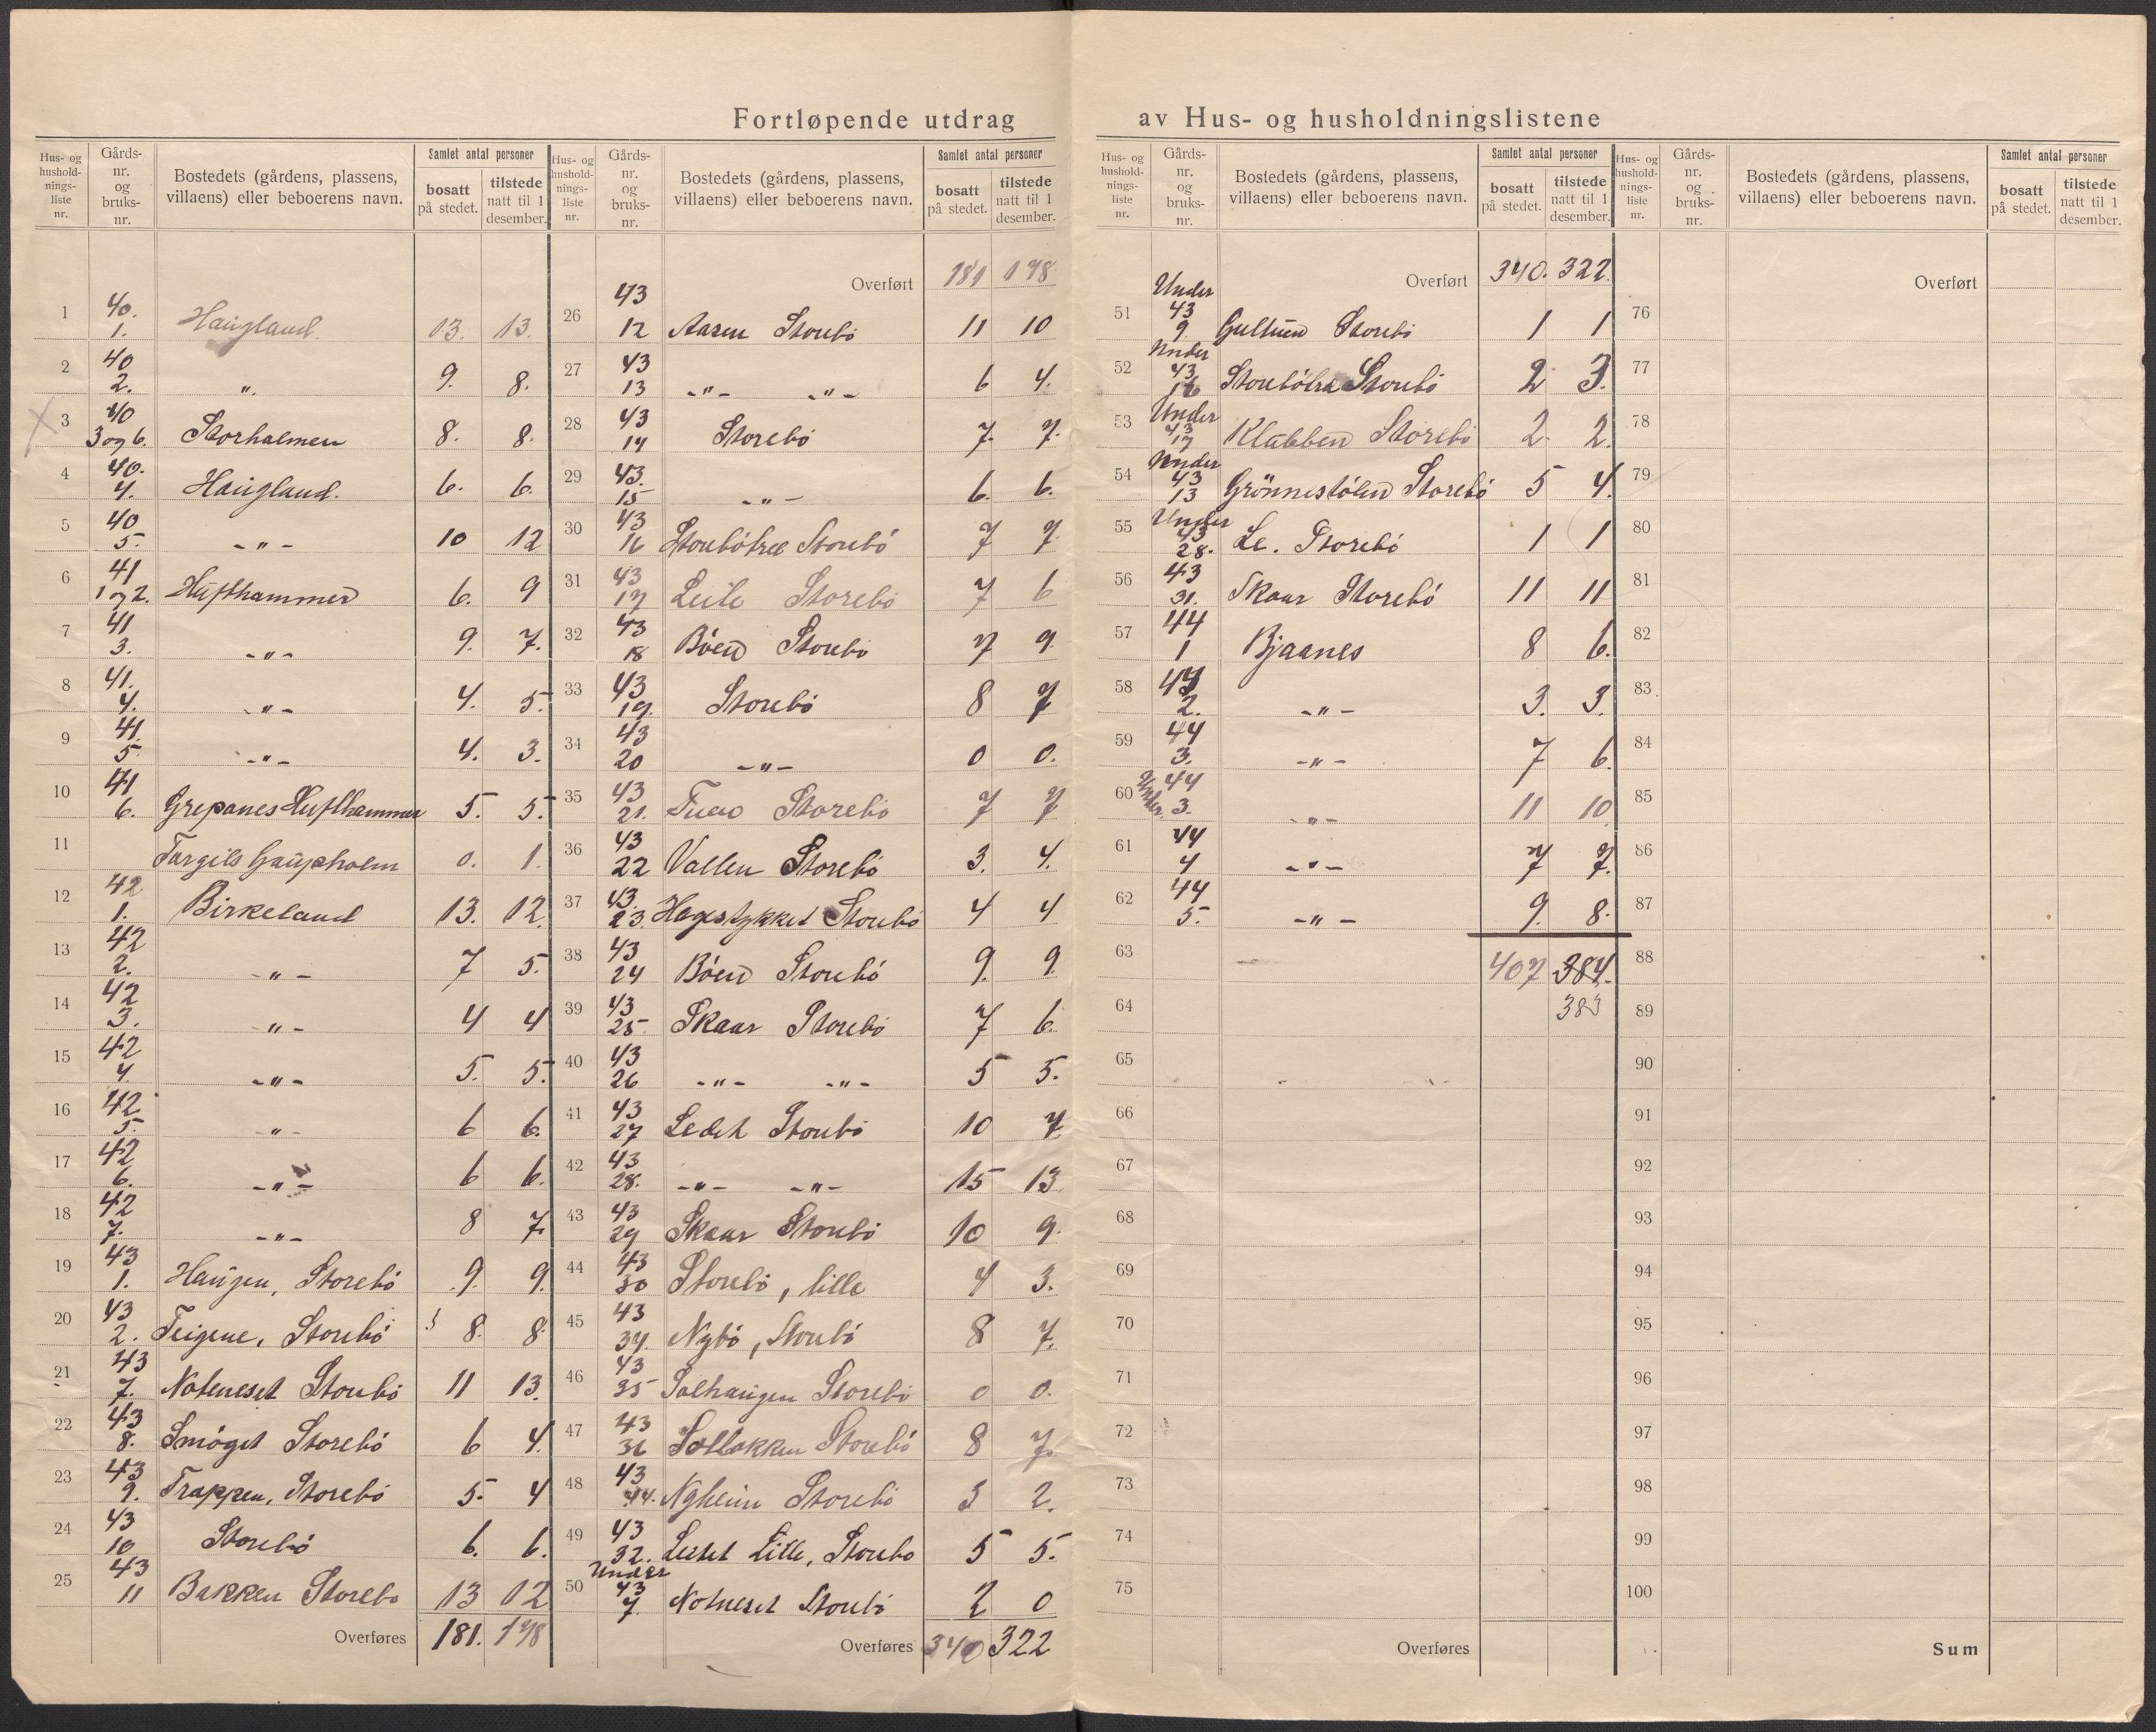 Fortløpende utdrag av Hus- og husholdningslistene
Hus- og husholdnings-liste nr. | Gårds-nr. og bruks-nr. | Bostedets (gårdens, plassens, villaens) eller beboerens navn. | Samlet antal personer | bosatt på stedet. | tilstede natt til 1 desember.
1 | 40. 1. | Haugland. | 13. | 13.
2 | 40 2. | „ | 9. | 8.
3 | 40 3 og 6. | Storholmen | 8. | 8.
4 | 40. 4. | Haugland. | 6. | 6.
5 | 40 5. | -„- | 10 | 12
6 | 41 1 og 2. | Hufthammer | 6. | 9
7 | 41 3. | -„- | 9. | 7.
8 | 41. 4. | -„- | 4. | 5.
9 | 41. 5. | -„- | 4. | 3.
10 | 41 6. | Grepanes Hufthammer | 5. | 5.
11 | Torgils | 0. | 1.
12 | 42 1. | Birkeland | 13. | 12.
13 | 42 2. | -„- | 7 | 5.
14 | 42 3. | -„- | 4 | 4
15 | 42 4. | -„- | 5. | 5.
16 | 42 5. | -„- | 6 | 6.
17 | 42 6. | -„- | 6 | 6.
18 | 42 7. | -„- | 8 | 7.
19 | 43 1. | Haugen, Storebö | 9. | 9.
20 | 43 2. | Teigene, Storebö | 8. | 8.
21 | 43 7. | Noteneset Storebö | 11 | 13.
22 | 43 8. | Smöget Storebö | 6 | 4.
23 | 43 9. | Trappen, Storebö | 5. | 4
24 | 43 10 | Storebö | 6. | 6.
25 | 43 11 | Bakken Storebö | 13 | 12
Overføres | 181. | 178
Hus- og husholdnings-liste nr. | Gårds-nr. og bruks-nr. | Bostedets (gårdens, plassens, villaens) eller beboerens navn. | Samlet antal personer | bosatt på stedet. | tilstede natt til 1 desember.
Overført | 181 | 178
26 | 43 12 | Aasen Storebö | 11 | 10
27 | 43 13 | -„- -„- | 6 | 4.
28 | 43 14 | Storebö | 7. | 7.
29 | 43. 15 | -„- | 6. | 6.
30 | 43 16 | Storebötræ Storebö | 7 | 7
31 | 43 17 | Leite Storebö | 7 | 6
32 | 43 18 | Böen Storebö | 7 | 9
33 | 43 19. | Storebö | 8 | 7
34 | 43 20 | -„- | 0 | 0.
35 | 43 21. | Storebö | 7 | 7
36 | 43 22 | Vallen Storebö | 3. | 4.
37 | 43. 23. | Hagestykket Storebö | 4 | 4
38 | 43 24 | Böen Storebö | 9. | 9.
39 | 43 25. | Skaar Storebö | 7 | 6.
40 | 43 26 | -„- -„- | 5 | 5.
41 | 43 27 | Ledet Storebö | 10 | 7
42 | 43 28. | -„- -„- | 15 | 13
43 | 43 29 | Skaar Storebö | 10 | 9.
44 | 43 30 | Storebö, lille | 4 | 3.
45 | 43 34. | Nybö, Storebö | 8 | 7.
46 | 43 35 | Solhaugen Storebö | 0 | 0.
47 | 43 36 | Solbakken Storebö | 8 | 7.
48 | 43 44. | Nyheim Storebö | 3 | 2.
49 | 43 32. | Lille, Storebö | 5 | 5.
50 | Under 43 7. | Notneset Storebö | 2 | 0
Overføres | 340 | 322
Hus- og husholdnings-liste nr. | Gårds-nr. og bruks-nr. | Bostedets (gårdens, plassens, villaens) eller beboerens navn. | Samlet antal personer | bosatt på stedet. | tilstede natt til 1 desember.
Overført | 340. | 322.
51 | Under 43 9. | Storebö | 1 | 1
52 | Under 43 16 | Storebötræ Storebö | 2 | 3.
53 | Under 43 17 | Klubben Storebö | 2. | 2.
54 | Under 43 13 | Grönnestölen Storebö | 5 | 4.
55 | Under 43 28. | Le. Storebö | 1 | 1
56 | 43 31. | Skaar Storebö | 11 | 11
57 | 44 1 | Bjaanes | 8 | 6.
58 | 44 2. | -„- | 3. | 3.
59 | 44 3. | -„- | 7 | 6.
60 | Under 44 3. | -„- | 11 | 10
61 | 44 4 | -„- | 7 | 7.
62 | 44 5. | -„- | 9. | 8.
63 | 407 | 384.
64 | 383
65
66
67
68
69
70
71
72
73
74
75
Overføres
Hus- og husholdnings-liste nr. | Gårds-nr. og bruks-nr. | Bostedets (gårdens, plassens, villaens) eller beboerens navn. | Samlet antal personer | bosatt på stedet. | tilstede natt til 1 desember.
Overført
76
77
78
79
80
81
82
83
84
85
86
87
88
89
90
91
92
93
94
95
96
97
98
99
100
Sum